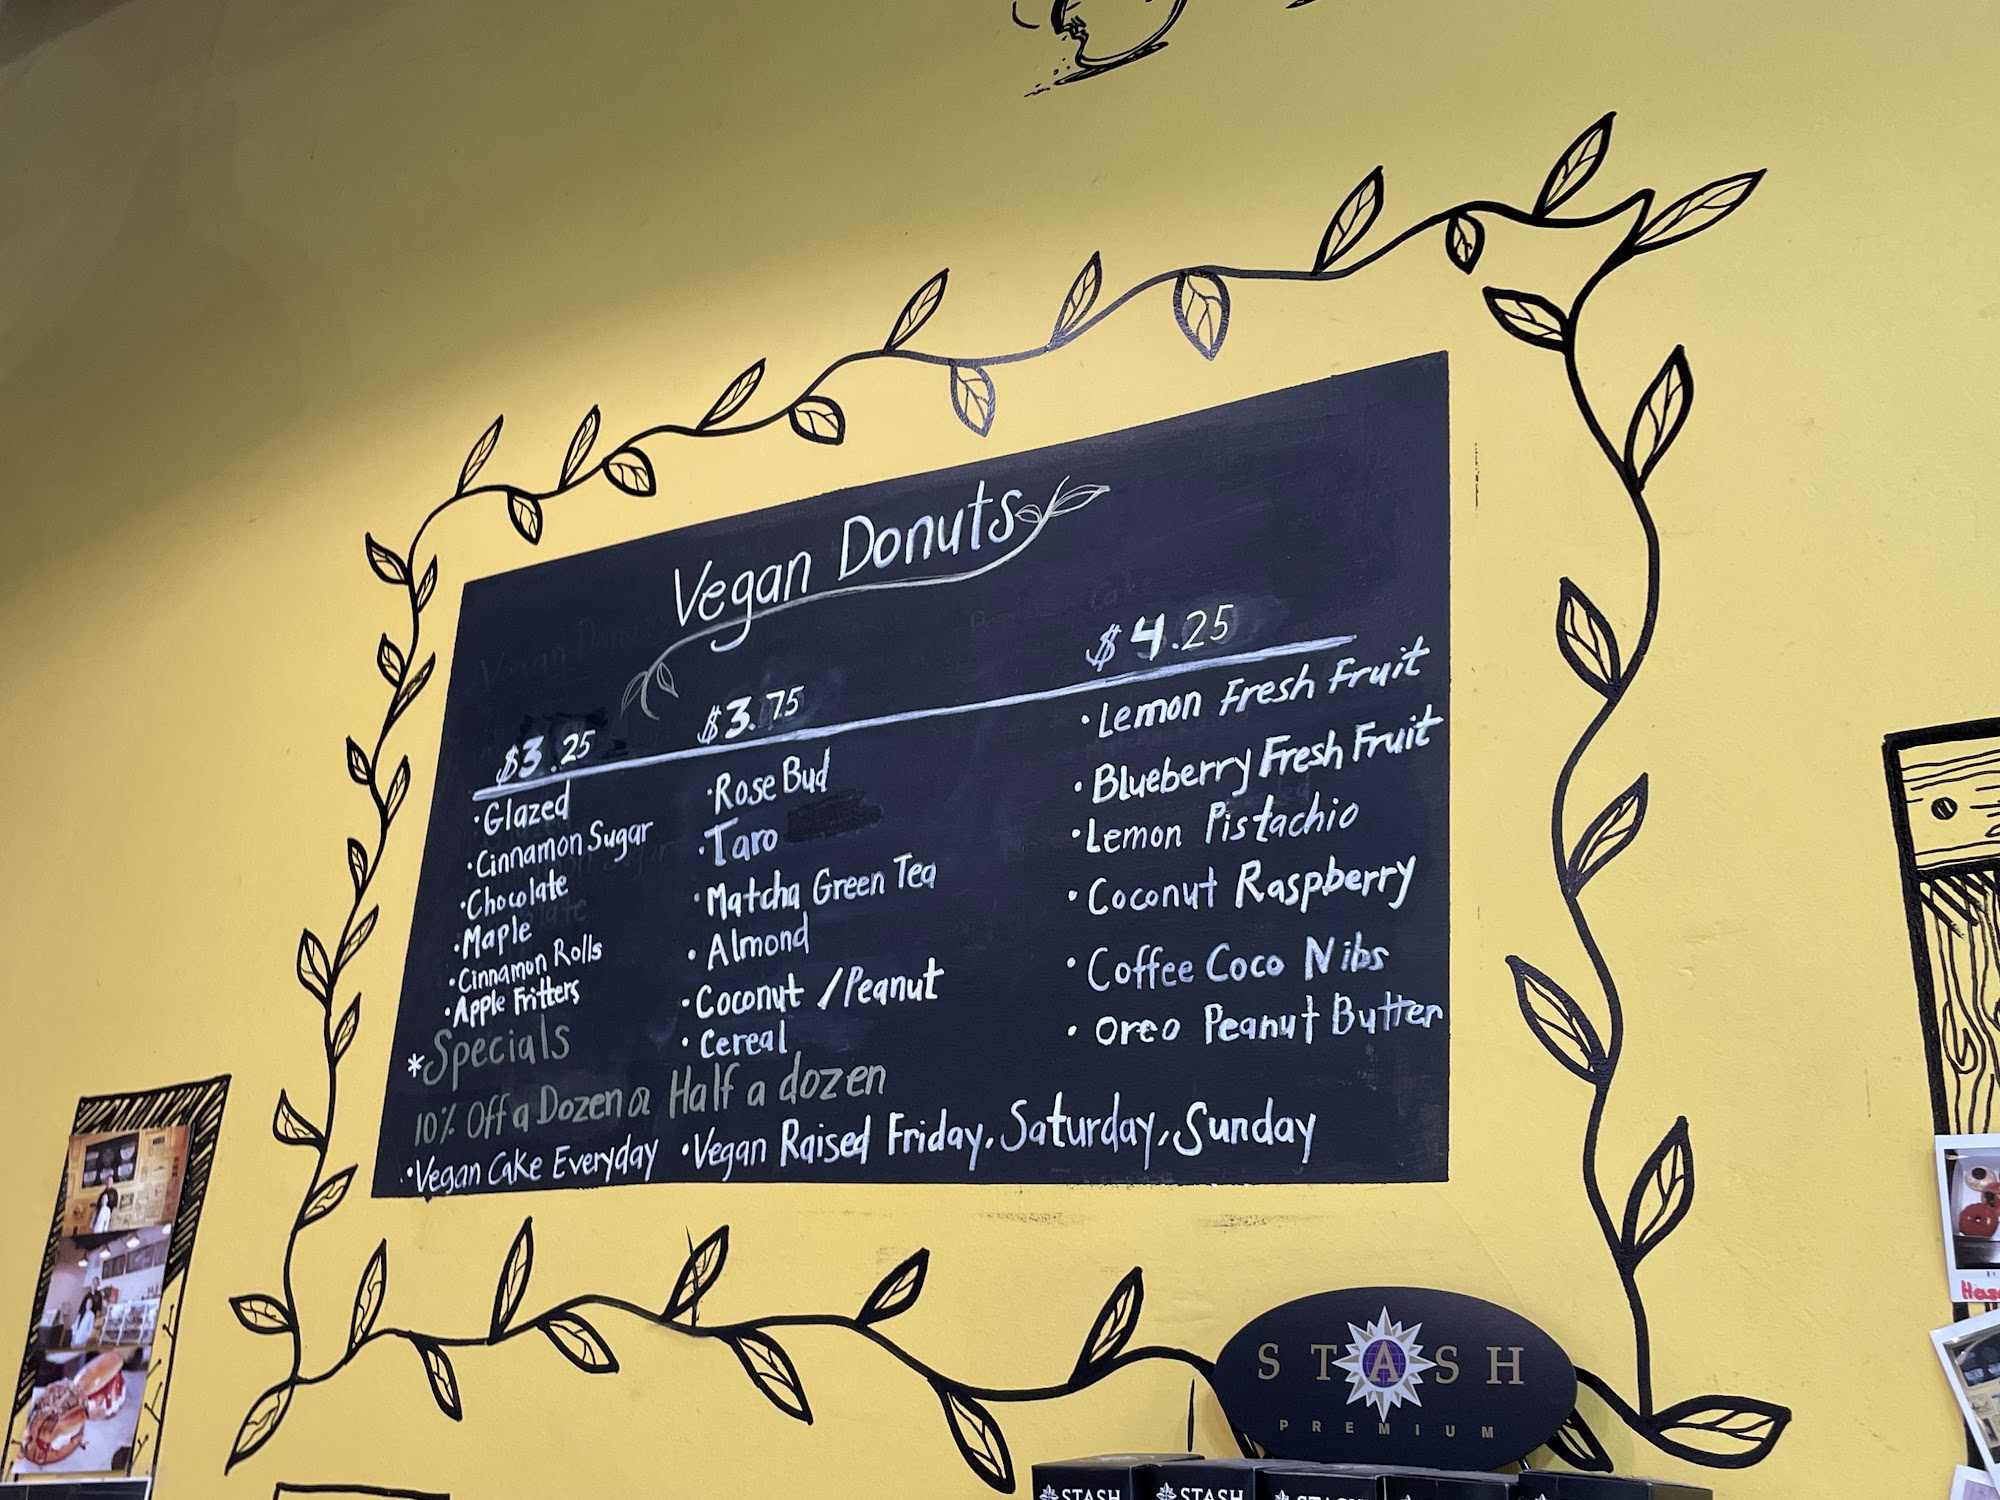 Vegan Donuts
$3.25
• Glazed
• Cinnamon Sugar
• Chocolate
• Maple
• Cinnamon Rolls
• Apple Fritters
$3.75
• Rose Bud
• Taro
• Matcha Green Tea
• Almond
• Coconut / Peanut
• Cereal
$4.25
• Lemon Fresh Fruit
• Blueberry Fresh Fruit
• Lemon Pistachio
• Coconut Raspberry
• Coffee Coco Nibs
• Oreo Peanut Butter
*Specials
10% Off a Dozen or Half a dozen
• Vegan Cake Everyday • Vegan Raised Friday, Saturday, Sunday
STASH
PREMIUM
STASH STASH STASH